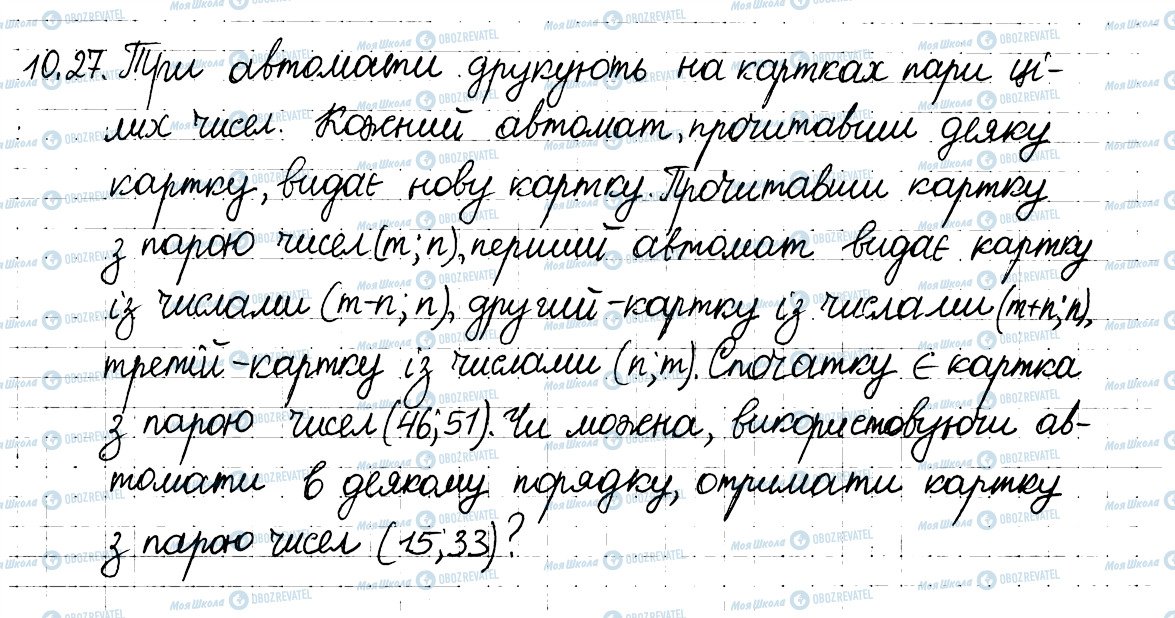 10.27. Три автомати друкують на картках пари ці-
лих чисел. Кожний автомат, прочитавши деяку
картку, видає нову картку. Прочитавши картку
з парою чисел (m; n), перший автомат видає картку
із числами (m-n; n), другий - картку із числами (m+n; n),
третій - картку із числами (n; m). Спочатку є картка
з парою чисел (46; 51). Чи можна, використовуючи ав-
томати в деякому порядку, отримати картку
з парою чисел (15; 33)?